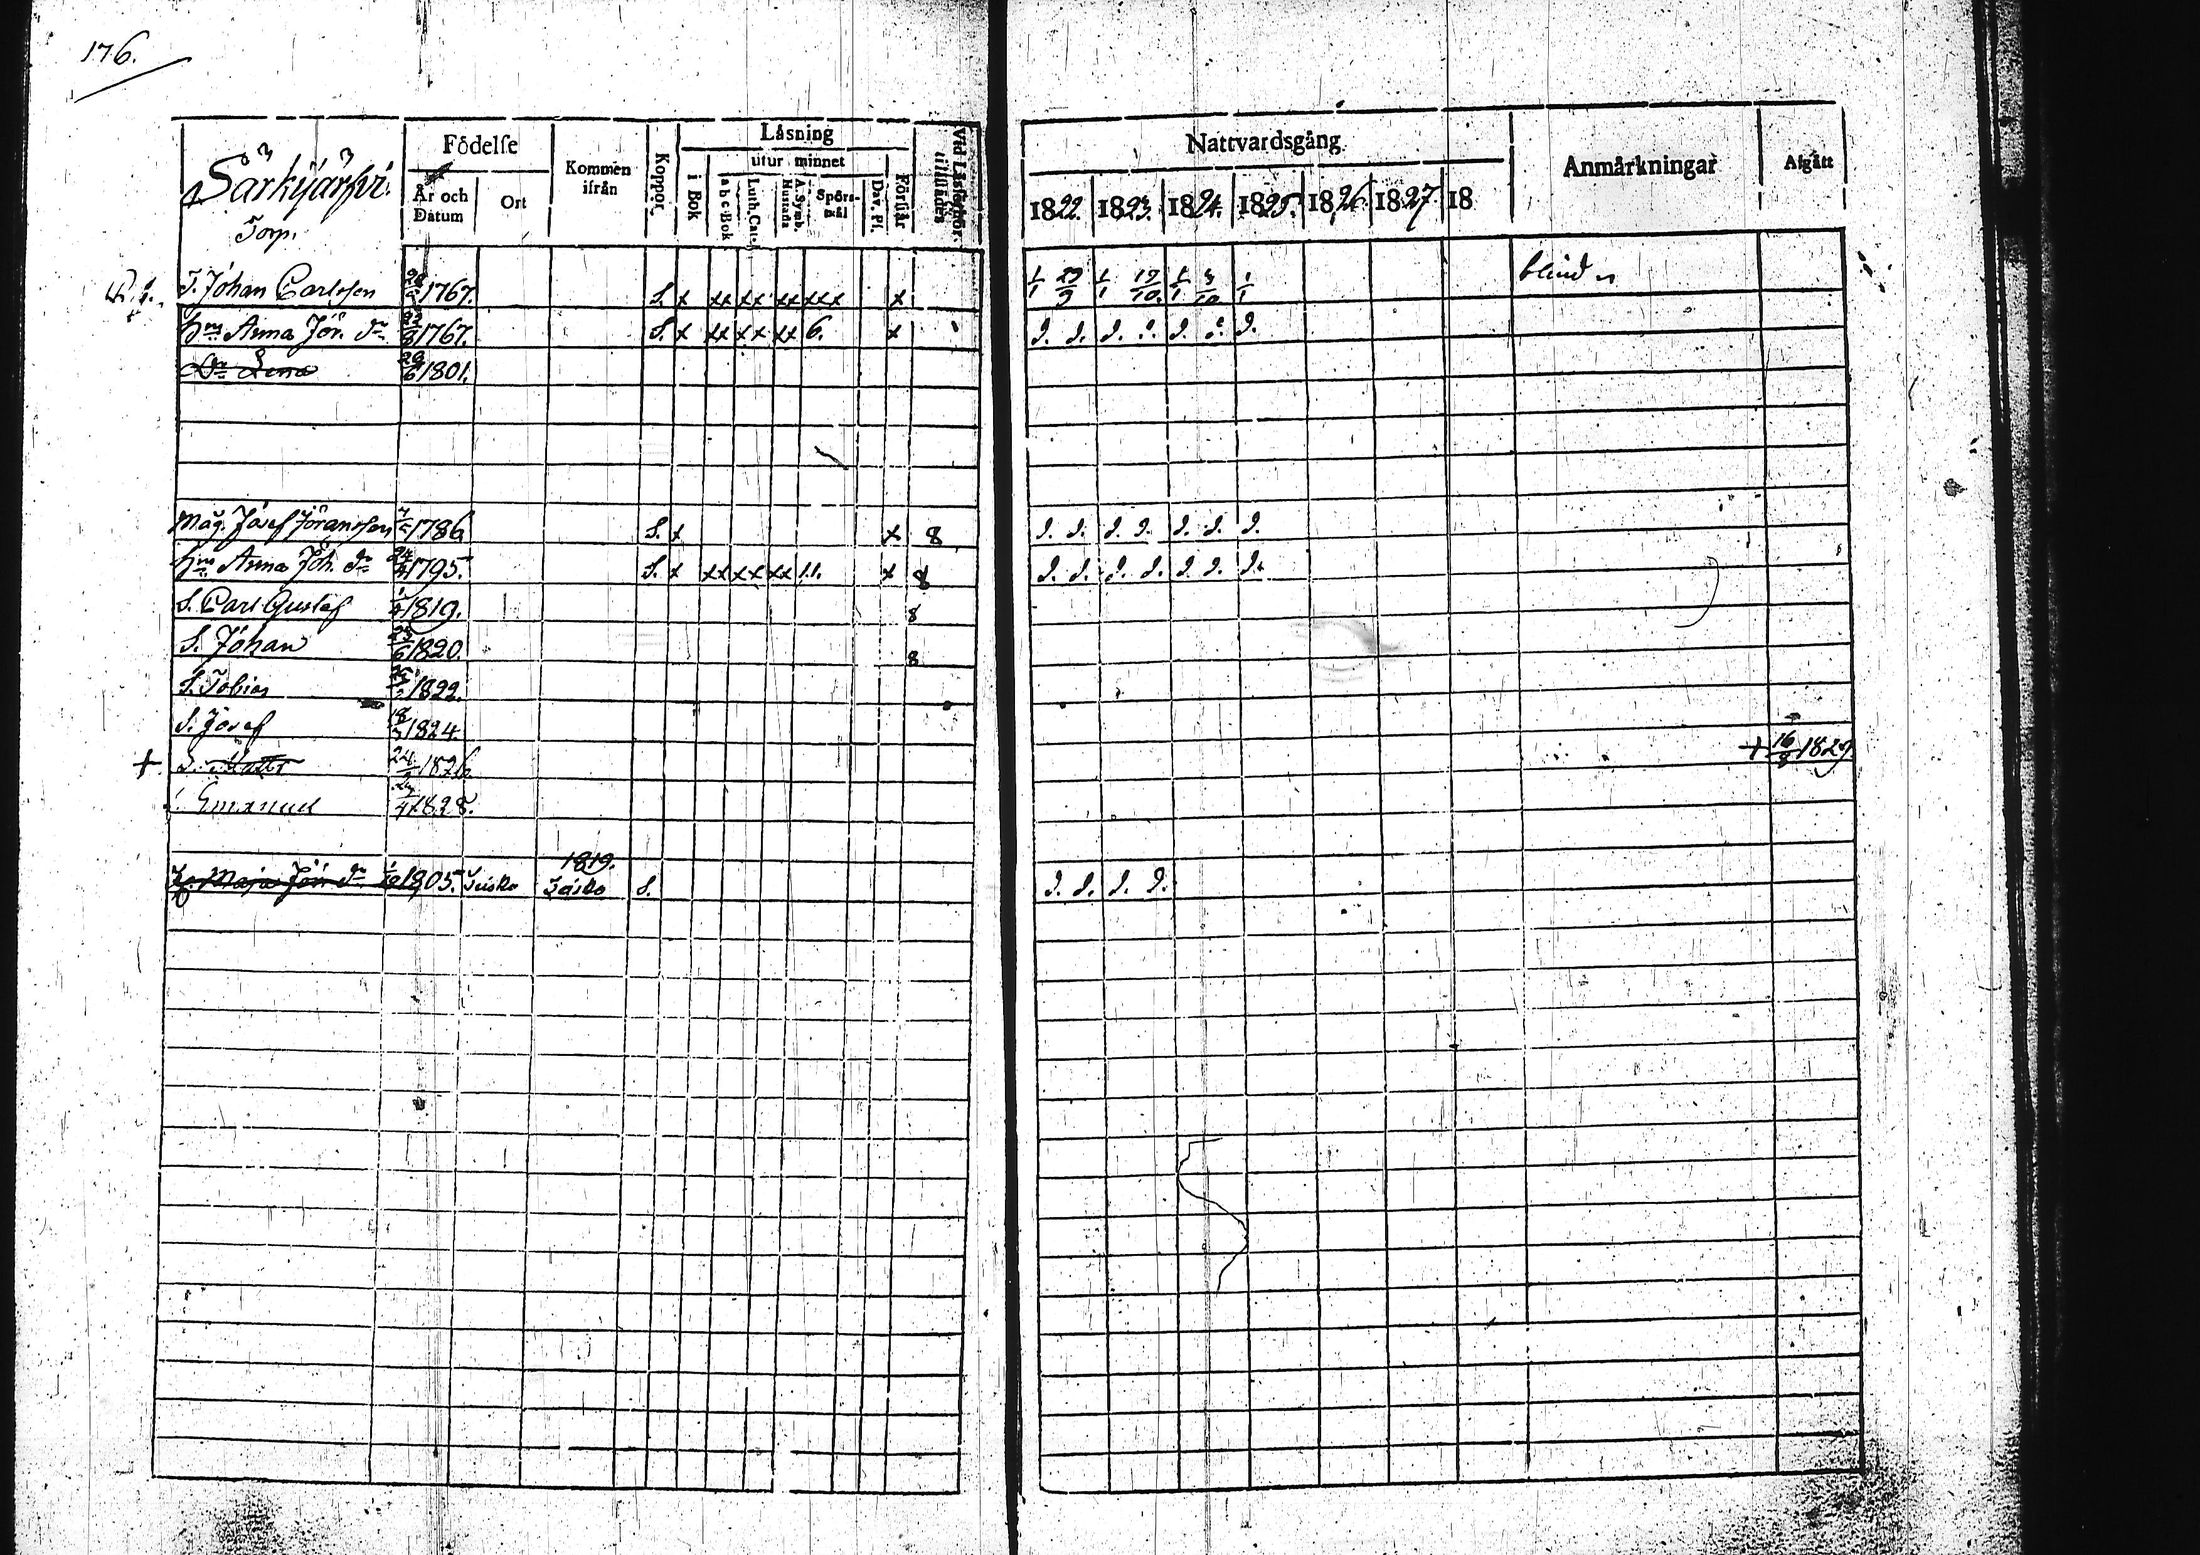 176.
Särkijärfvi
Torp.
Födelse
År och Datum
Ort
Kommen ifrån
Koppor.
Läsning
i Bok
utur minnet
a b c-Bok
Luth. Cat.
A. Symb. Hustafla
Spörsmål
Dav. Ps.
Förstår
Vid Läsförhör. tillstädes
Nattvardsgång
1822. 1823. 1824. 1825. 1826. 1827. 18
Anmärkningar
Afgått
T. Johan Carlsson 1767. S. x xx xx xx xxx x 1/1 1/1 19/10. 1/1 1/1 blind
Hru Anna Jör. dr 1767. S. x xx xx xx 6. x D. D. D. D. D. D. D.
Dr Lena 29/6 1801.
Måg. Josef Jöransson 1786 S. x x 8 D. D. D. D. D. D. D.
Hru Anna Joh. dr 24/4 1795. S. x xx xx xx 11. x 8 D. D. D. D. D. D. D.
S. Carl Gustaf 1819. 8
S. Johan 1820. 8
S. Tobias 1822.
S. Josef 18 1824.
+ S. Matts 24 1826. + 16/8 1829.
Emanuel 1828.
1819.
Maja Jör dr 1805. S. D. D. D. D.